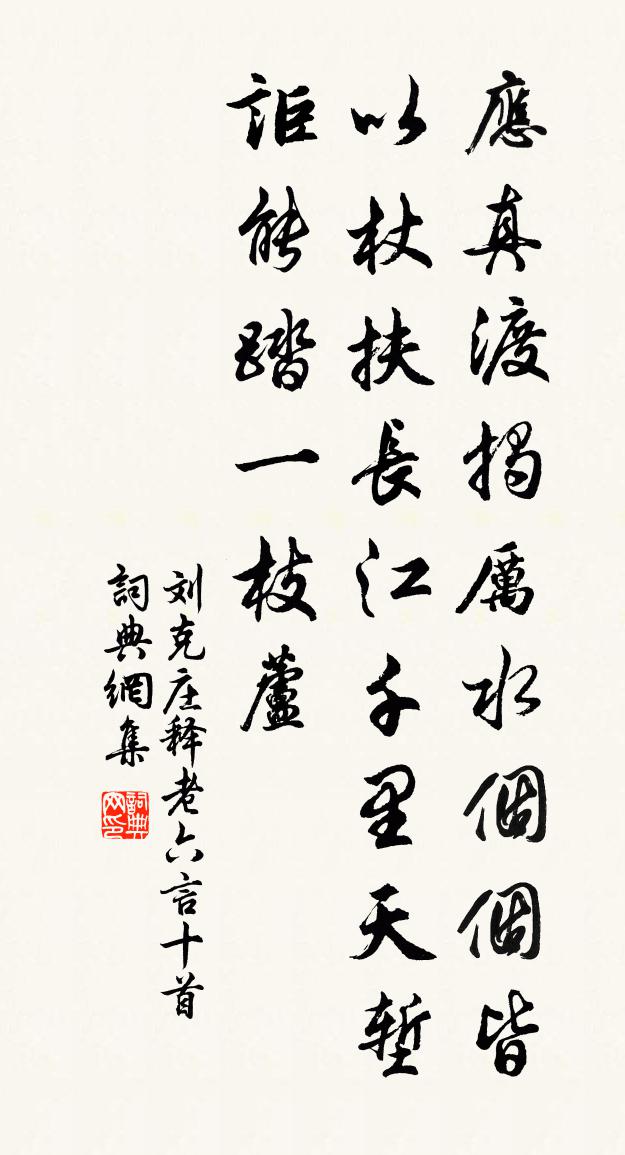 應真渡揭厲水個個皆
以杖扶長江千里天塹
詎能踏一枝蘆
刘克庄释老六言十首
詞典網集
詞典网印